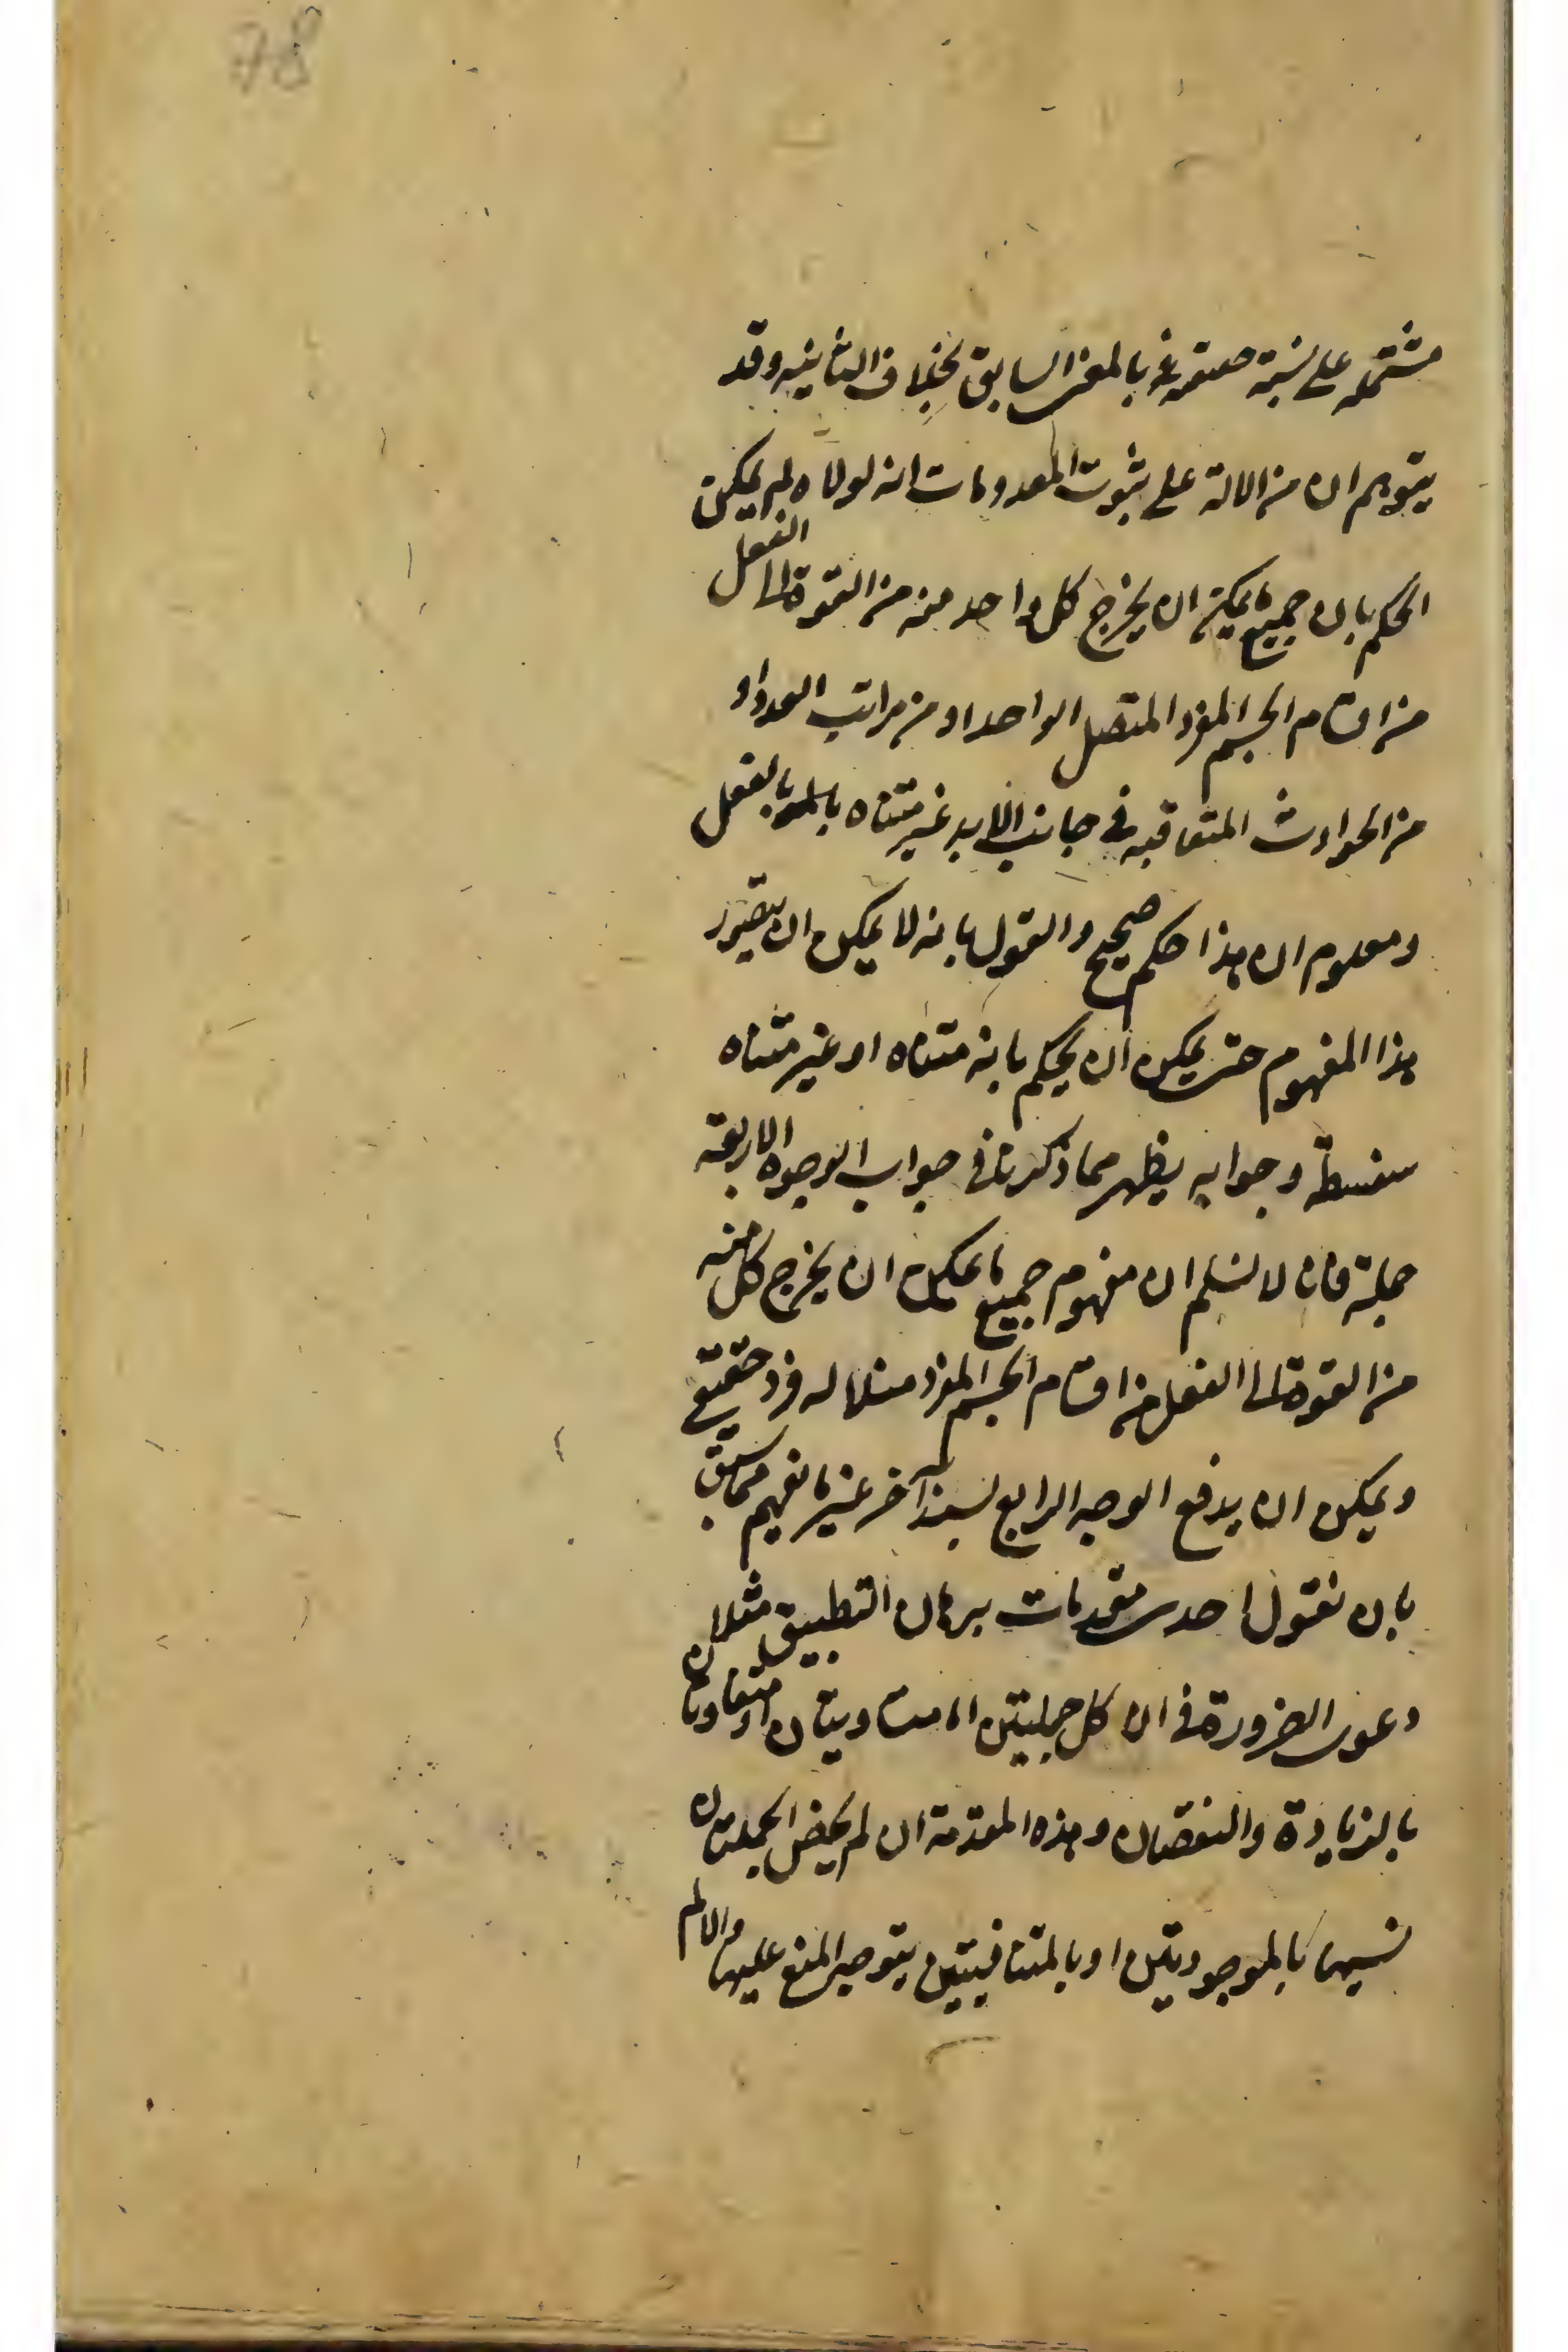 78
مشتمله على نسبة حقيقية بالمعنى السابق بخلاف الثانية وقد
يتوهم ان من الادلة على ثبوت المعدومات انه لولاه لم يمكن
الحكم بان جميع ما يمكن ان يخرج كل واحد منه من القوة الى الفعل
من اقسام الجسم المفرد المتصل الواحد او من مراتب العدد او
من الحوادث المتعاقبه في جانب الابد غير متناه بالفعل
ومعلوم ان هذا حكم صحيح والقول بانه لا يمكن ان يتصور
هذا المفهوم حتى يمكن ان يحكم بانه متناه او غير متناه
سفسطة وجوابه يظهر مما ذكرنا في جواب الوجوه الاربعة
جملة فانا لا نسلم ان مفهوم جميع ما يمكن ان يخرج كل منه
من القوة الى الفعل من اقسام الجسم المفرد مثلا له فرد حقيقي
ويمكن ان يدفع الوجه الرابع بسند آخر غير ما يفهم مما سبق
بان نقول احدى مقدمات برهان التطبيق مثلا
دعوى الضرورة في ان كل جملتين اما متساويتان او متفاوتتان
بالزيادة والنقصان وهذه المقدمة ان لم يخص الجملتان
فيها بالموجودتين او بالمتناهيتين يتوجه المنع عليها والا لم